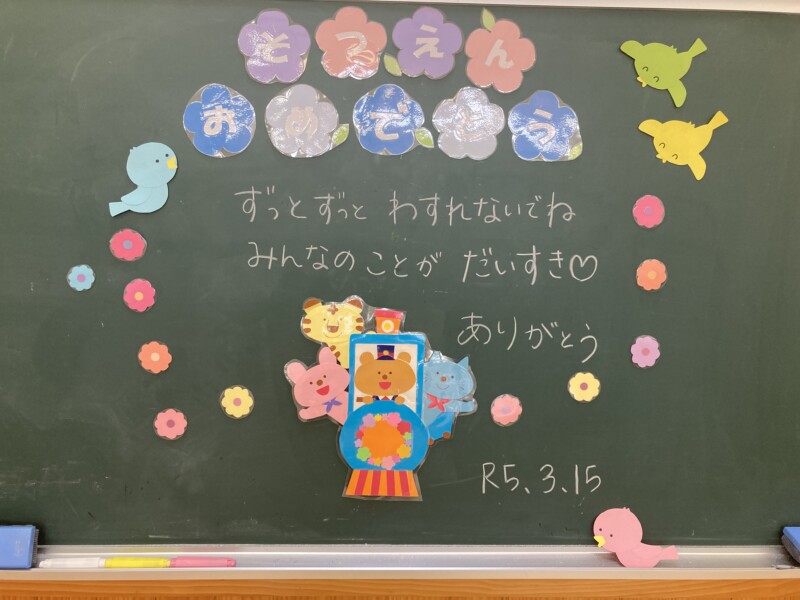 そつえん
おめでとう
ずっとずっと わすれないでね
みんなのことが だいすき♡
ありがとう
R5.3.15